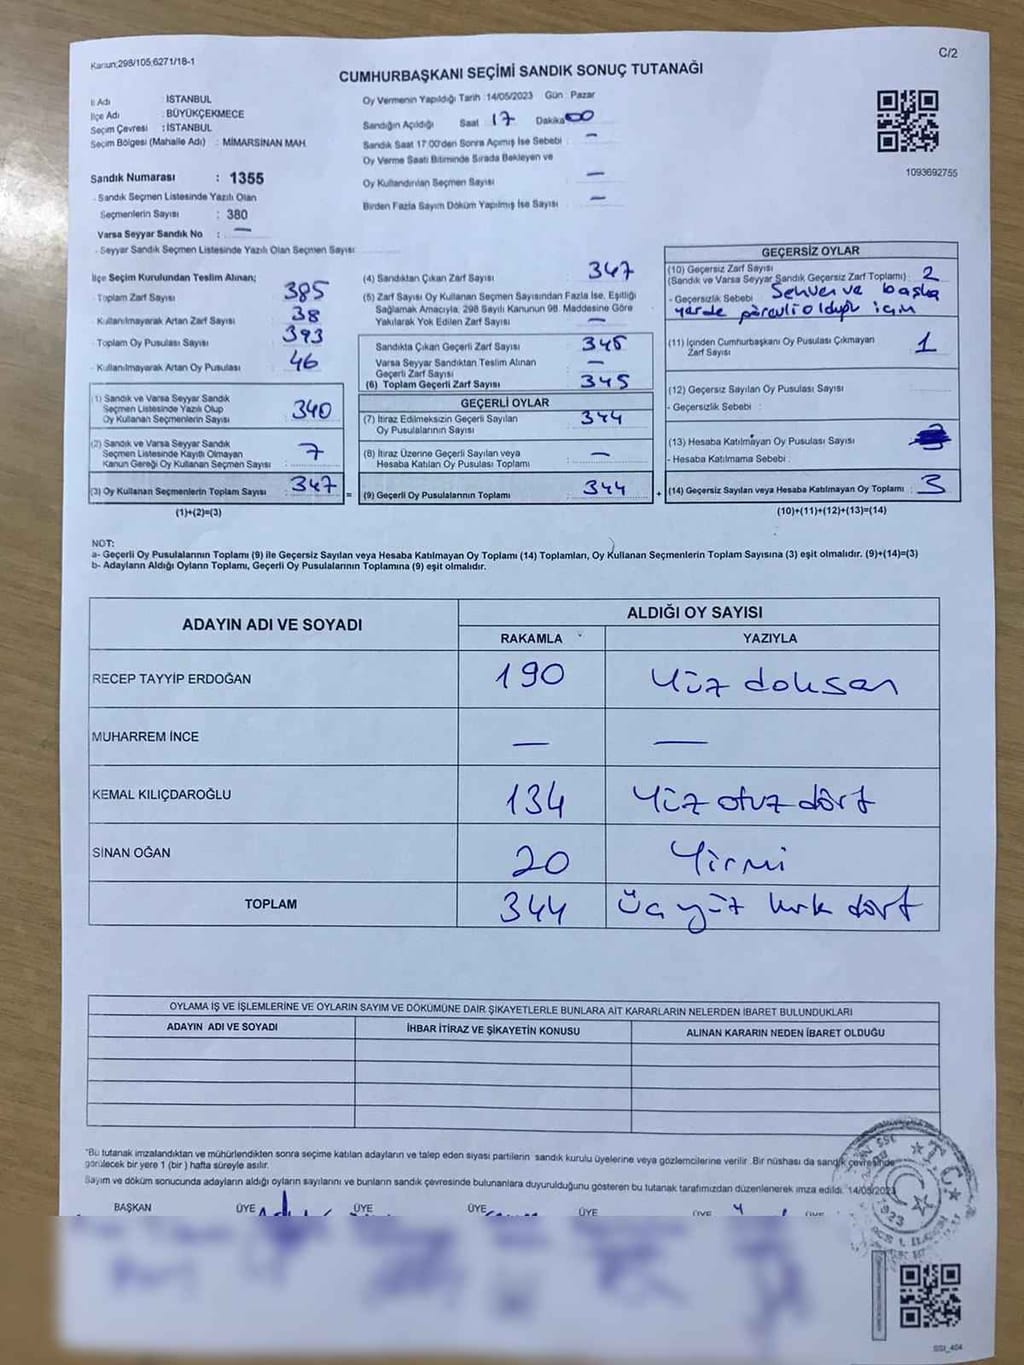 Kanun;298/105;6271/18-1
C/2
CUMHURBAŞKANI SEÇİMİ SANDIK SONUÇ TUTANAĞI
İl Adı : İSTANBUL
İlçe Adı : BÜYÜKÇEKMECE
Seçim Çevresi : İSTANBUL
Seçim Bölgesi (Mahalle Adı) : MİMARSİNAN MAH.
Sandık Numarası : 1355
- Sandık Seçmen Listesinde Yazılı Olan
Seçmenlerin Sayısı : 380
Varsa Seyyar Sandık No : —
- Seyyar Sandık Seçmen Listesinde Yazılı Olan Seçmen Sayısı
Oy Vermenin Yapıldığı Tarih : 14/05/2023 Gün : Pazar
Sandığın Açıldığı Saat 17 Dakika 00
Sandık Saat 17:00'den Sonra Açımış İse Sebebi —
Oy Verme Saati Bitiminde Sırada Bekleyen ve
Oy Kullandırılan Seçmen Sayısı —
Birden Fazla Sayım Döküm Yapılmış İse Sayısı —
1093692755
İlçe Seçim Kurulundan Teslim Alınan;
- Toplam Zarf Sayısı 385
- Kullanılmayarak Artan Zarf Sayısı 38
- Toplam Oy Pusulası Sayısı 393
- Kullanılmayarak Artan Oy Pusulası 46
(1) Sandık ve Varsa Seyyar Sandık
Seçmen Listesinde Yazılı Olup
Oy Kullanan Seçmenlerin Sayısı 340
(2) Sandık ve Varsa Seyyar Sandık
Seçmen Listesinde Kayıtlı Olmayan
Kanun Gereği Oy Kullanan Seçmen Sayısı 7
(3) Oy Kullanan Seçmenlerin Toplam Sayısı 347
(1)+(2)=(3)
=
(4) Sandıktan Çıkan Zarf Sayısı 347
(5) Zarf Sayısı Oy Kullanan Seçmen Sayısından Fazla İse, Eşitliği
Sağlamak Amacıyla, 298 Sayılı Kanunun 98. Maddesine Göre
Yakılarak Yok Edilen Zarf Sayısı —
Sandıkta Çıkan Geçerli Zarf Sayısı 345
Varsa Seyyar Sandıktan Teslim Alınan
Geçerli Zarf Sayısı —
(6) Toplam Geçerli Zarf Sayısı 345
GEÇERLİ OYLAR
(7) İtiraz Edilmeksizin Geçerli Sayılan
Oy Pusulalarının Sayısı 344
(8) İtiraz Üzerine Geçerli Sayılan veya
Hesaba Katılan Oy Pusulası Toplamı —
(9) Geçerli Oy Pusulalarının Toplamı 344
+
GEÇERSİZ OYLAR
(10) Geçersiz Zarf Sayısı
(Sandık ve Varsa Seyyar Sandık Geçersiz Zarf Toplamı) 2
- Geçersizlik Sebebi : Sehven ve başka
yerde görevli olduğu için
(11) İçinden Cumhurbaşkanı Oy Pusulası Çıkmayan
Zarf Sayısı 1
(12) Geçersiz Sayılan Oy Pusulası Sayısı
- Geçersizlik Sebebi :
(13) Hesaba Katılmayan Oy Pusulası Sayısı
- Hesaba Katılmama Sebebi :
(14) Geçersiz Sayılan veya Hesaba Katılmayan Oy Toplamı : 3
(10)+(11)+(12)+(13)=(14)
NOT:
a- Geçerli Oy Pusulalarının Toplamı (9) ile Geçersiz Sayılan veya Hesaba Katılmayan Oy Toplamı (14) Toplamları, Oy Kullanan Seçmenlerin Toplam Sayısına (3) eşit olmalıdır. (9)+(14)=(3)
b- Adayların Aldığı Oyların Toplamı, Geçerli Oy Pusulalarının Toplamına (9) eşit olmalıdır.
ADAYIN ADI VE SOYADI
ALDIĞI OY SAYISI
RAKAMLA YAZIYLA
RECEP TAYYİP ERDOĞAN 190 Yüz doksan
MUHARREM İNCE — —
KEMAL KILIÇDAROĞLU 134 Yüz otuz dört
SİNAN OĞAN 20 Yirmi
TOPLAM 344 Üç yüz kırk dört
OYLAMA İŞ VE İŞLEMLERİNE VE OYLARIN SAYIM VE DÖKÜMÜNE DAİR ŞİKAYETLERLE BUNLARA AİT KARARLARIN NELERDEN İBARET BULUNDUKLARI
ADAYIN ADI VE SOYADI İHBAR İTİRAZ VE ŞİKAYETİN KONUSU ALINAN KARARIN NEDEN İBARET OLDUĞU
*Bu tutanak imzalandıktan ve mühürlendikten sonra seçime katılan adayların ve talep eden siyasi partilerin sandık kurulu üyelerine veya gözlemcilerine verilir. Bir nüshası da sandık çevresinde
görülecek bir yere 1 (bir) hafta süreyle asılır.
Sayım ve döküm sonucunda adayların aldığı oyların sayılarını ve bunların sandık çevresinde bulunanlara duyurulduğunu gösteren bu tutanak tarafımızdan düzenlenerek imza edildi. 14/05/2023
BAŞKAN ÜYE ÜYE ÜYE ÜYE ÜYE ÜYE
T.C.
SSI_404